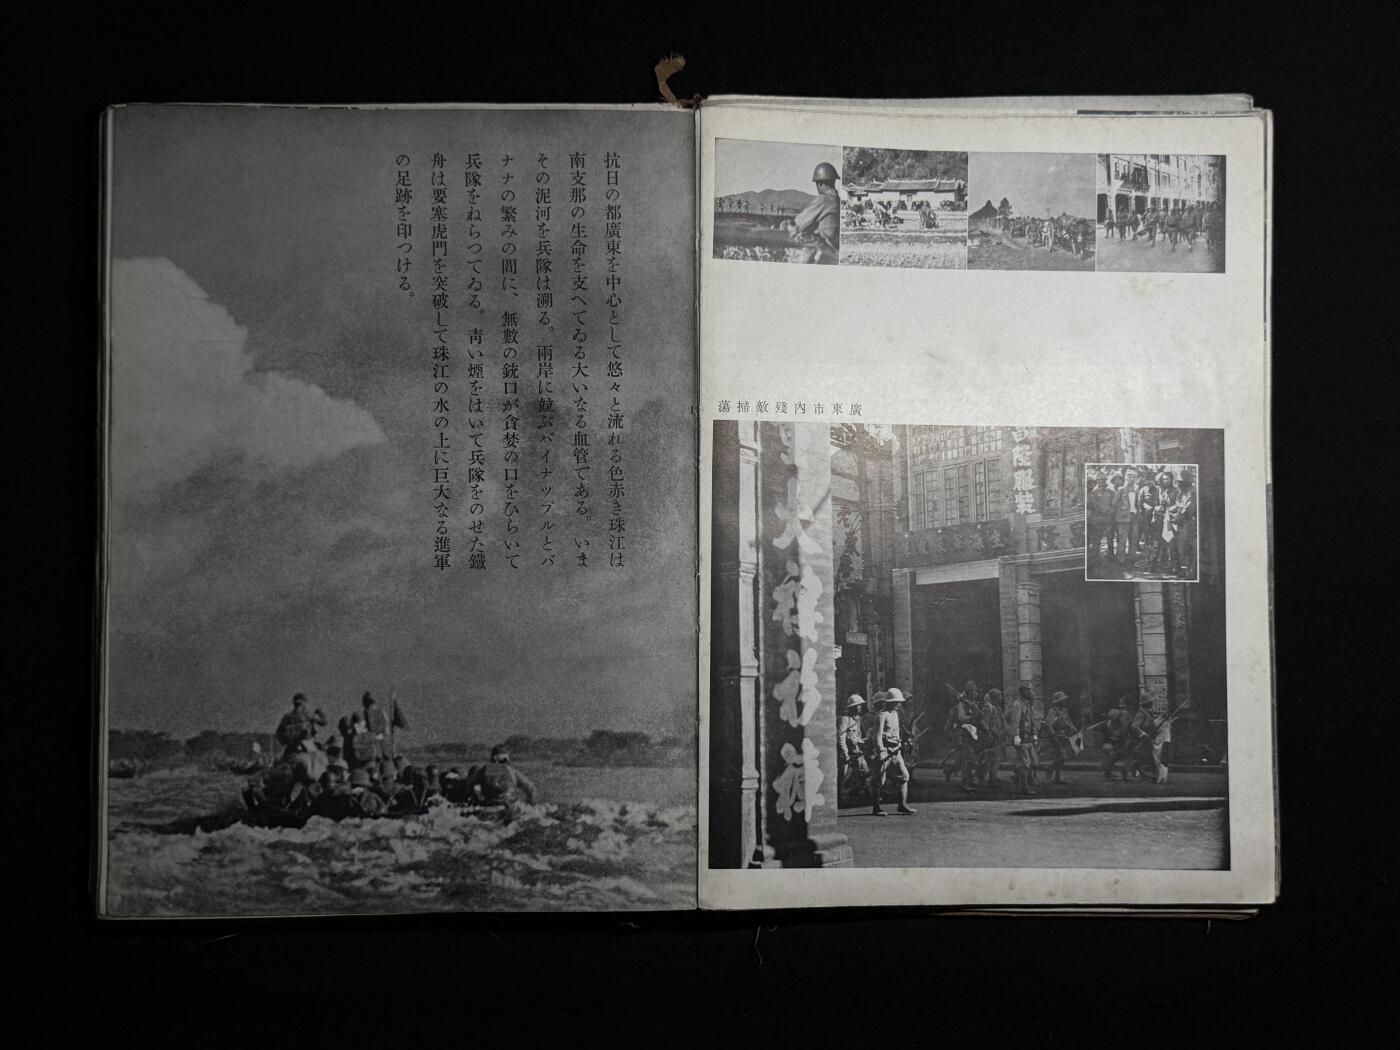 抗日の都廣東を中心として悠々と流れる色赤き珠江は
南支那の生命を支へてゐる大いなる血管である。いま
その泥河を兵隊は溯る。兩岸に竝ぶパイナップルとバ
ナナの繁みの間に、無數の銃口が貪婪の口をひらいて
兵隊をねらつてゐる。靑い煙をはいて兵隊をのせた鐵
舟は要塞虎門を突破して珠江の水の上に巨大なる進軍
の足跡を印つける。
廣東市內殘敵掃蕩
服裝
大